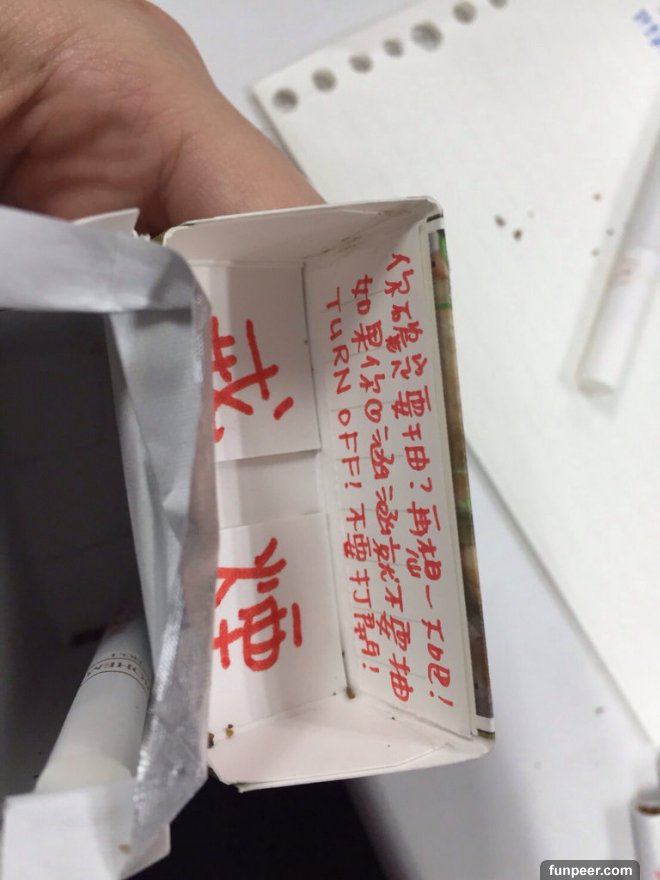 你確定要抽？再想一下吧！
如果你♡涵涵就不要抽
TURN OFF！不要打開！
戒煙
funpeer.com